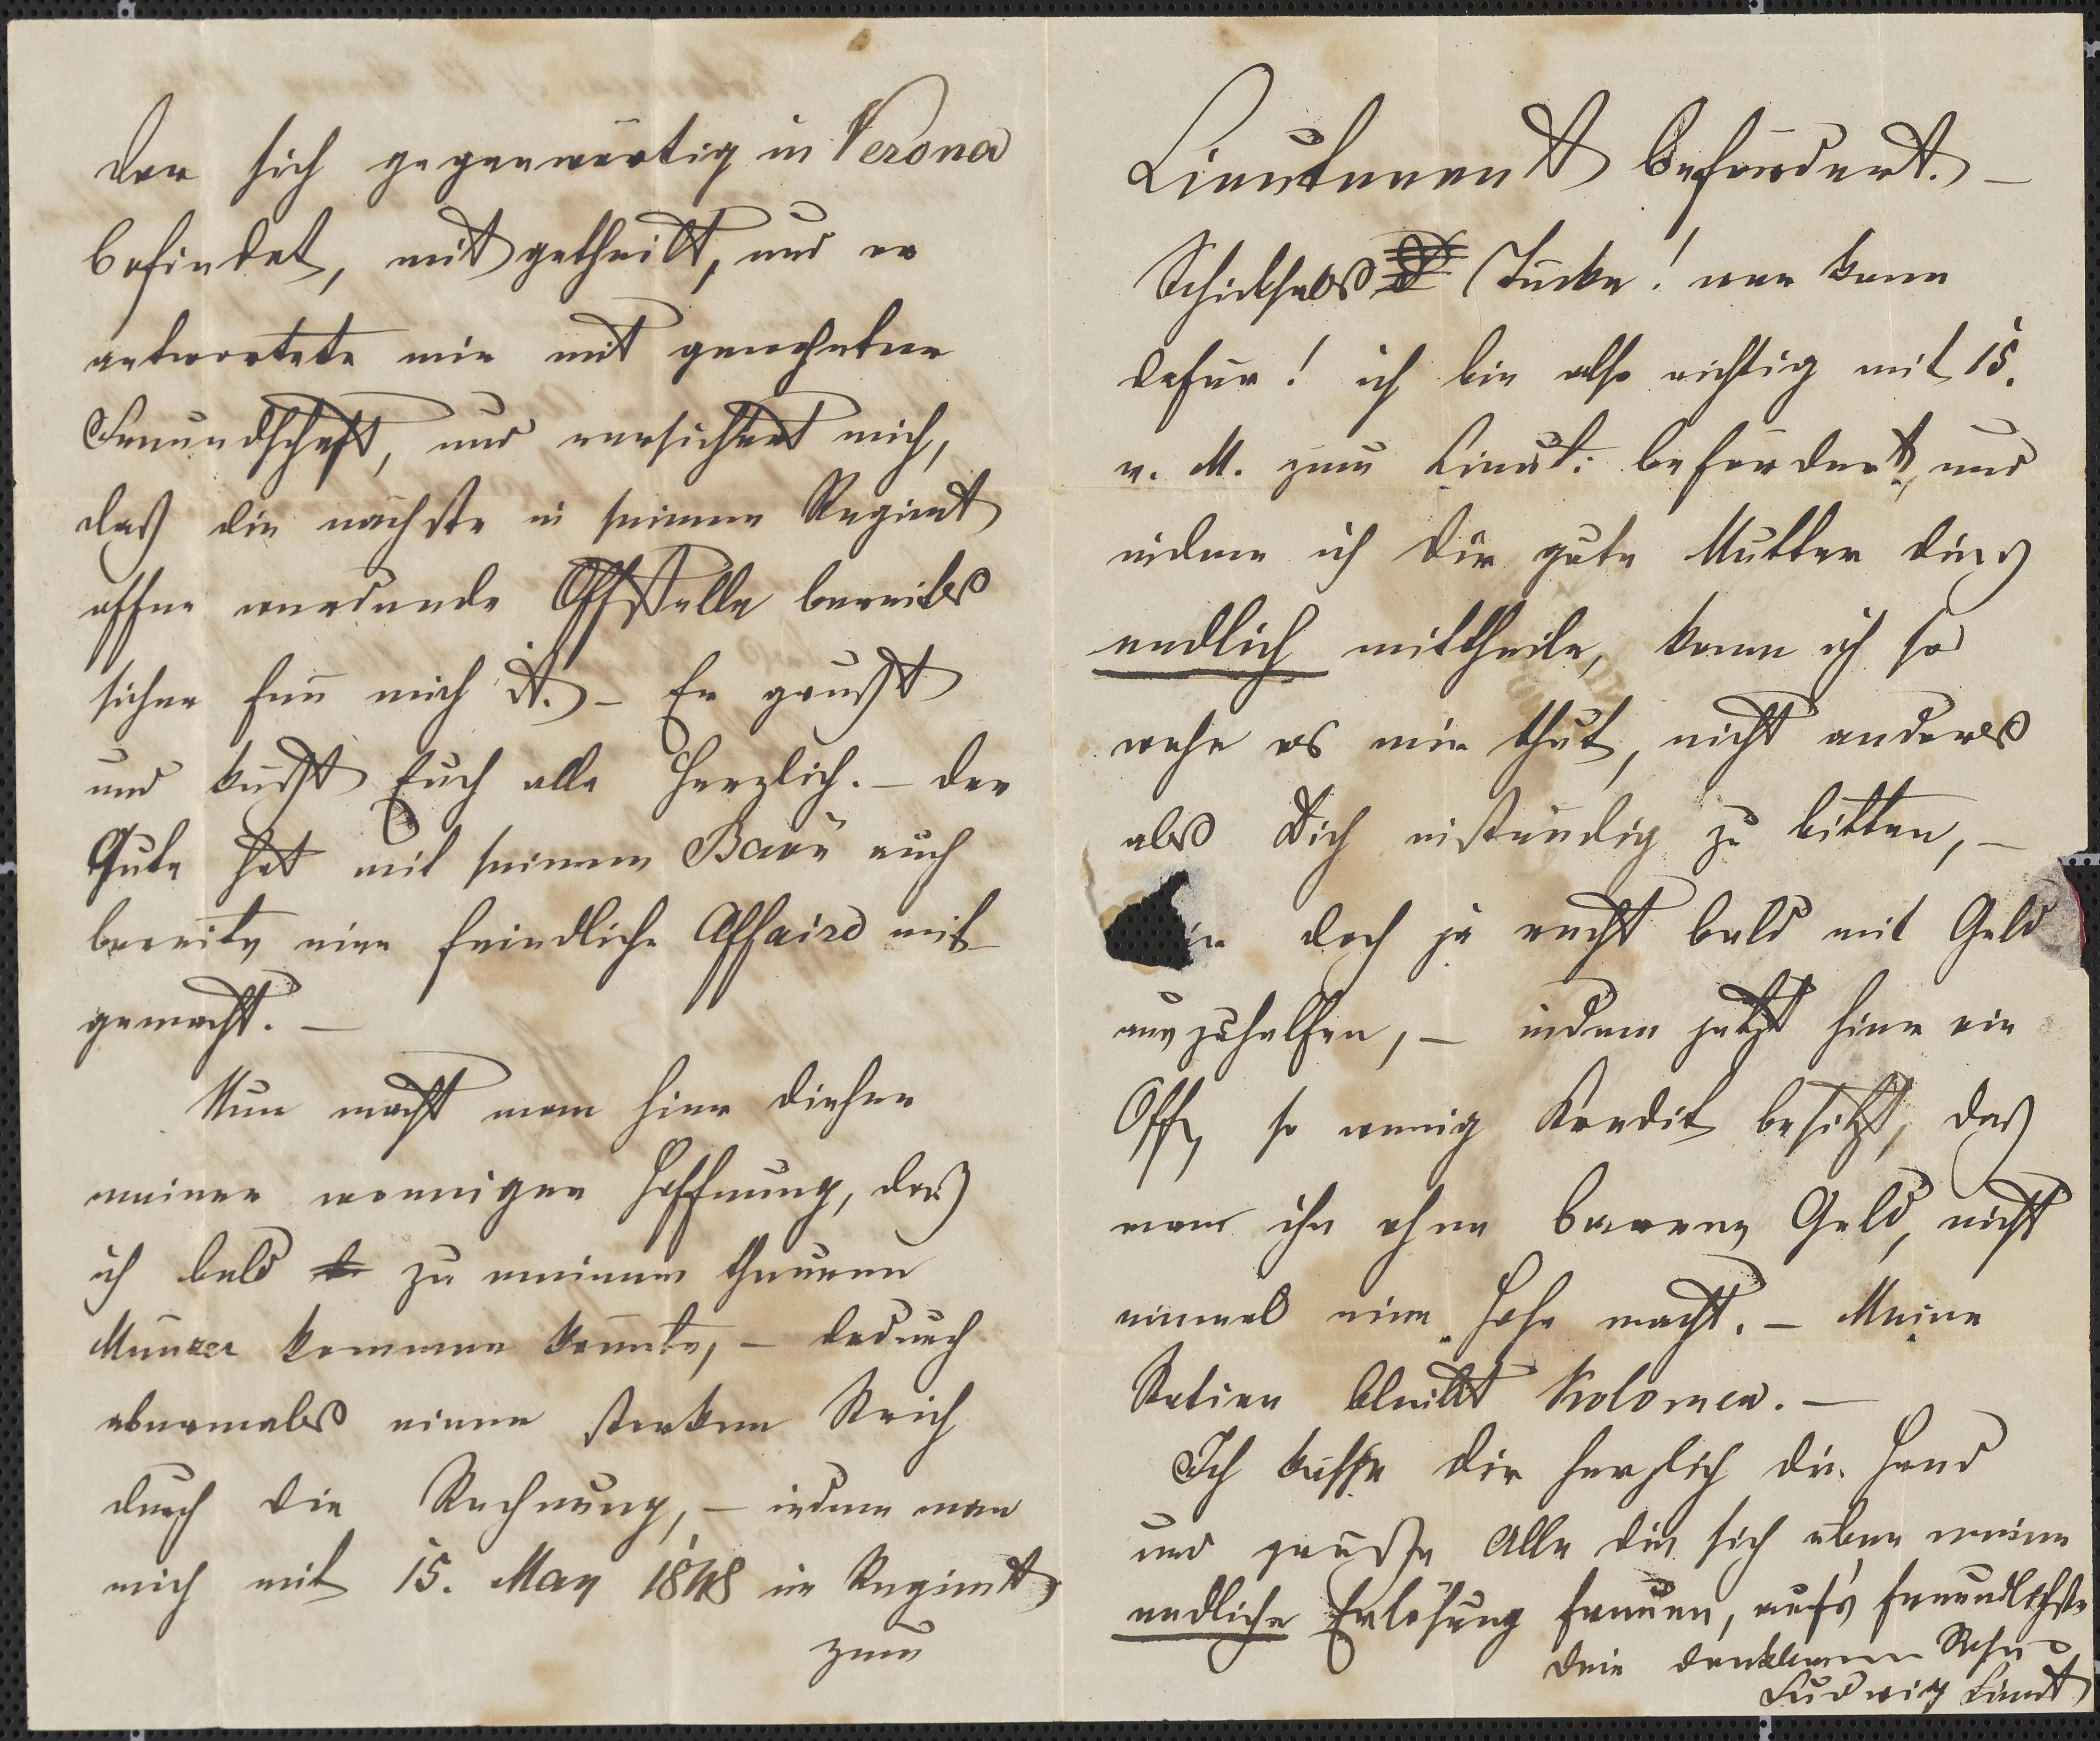 der sich gegenwärtig in Verona
befindet, mitgetheilt, und er
antwortete mir mit gewohnter
Freundschaft, und versichert mich,
daß die nächste in seinem Regimt
offen werdende Offstelle bereits
sicher für mich ist. – Er grüßt
und küßt Euch alle herzlich. – der
Gute hat mit seinem Baon auch
bereits eine feindliche Affaire mit
gemacht. –
Nun macht man hier dieser
meiner wonnigen Hoffnung, daß
ich bald zu meinem theuren
Münzer kommen könnte, – dadurch
abermals einen starken Strich
durch die Rechnung, – indem man
mich mit 15. May 1848 im Regimt
zum
Lieutenant befördert. –
Schicksals Tücke! wer kann
dafür! ich bin also richtig mit 15.
v. M. zum Lieut: befördert, und
indem ich dir gute Mutter dieß
endlich mittheile, kann ich so
wehe es mir thut, nicht anders
als Dich inständig zu bitten, –
doch ja recht bald mit Geld
auszuhelfen, – indem jetzt hier ein
Off. so wenig Kredit besitzt, daß
man ihm ohne baares Geld, nicht
einmal eine Hose macht. – Meine
Station bleibt Kolomea. –
Ich küsse dir herzlich die Hand
und grüße Alle die sich über meine
endliche Erlösung freuen, auf's freundlichste
dein dankbarer Sohn
Ludwig Lieut